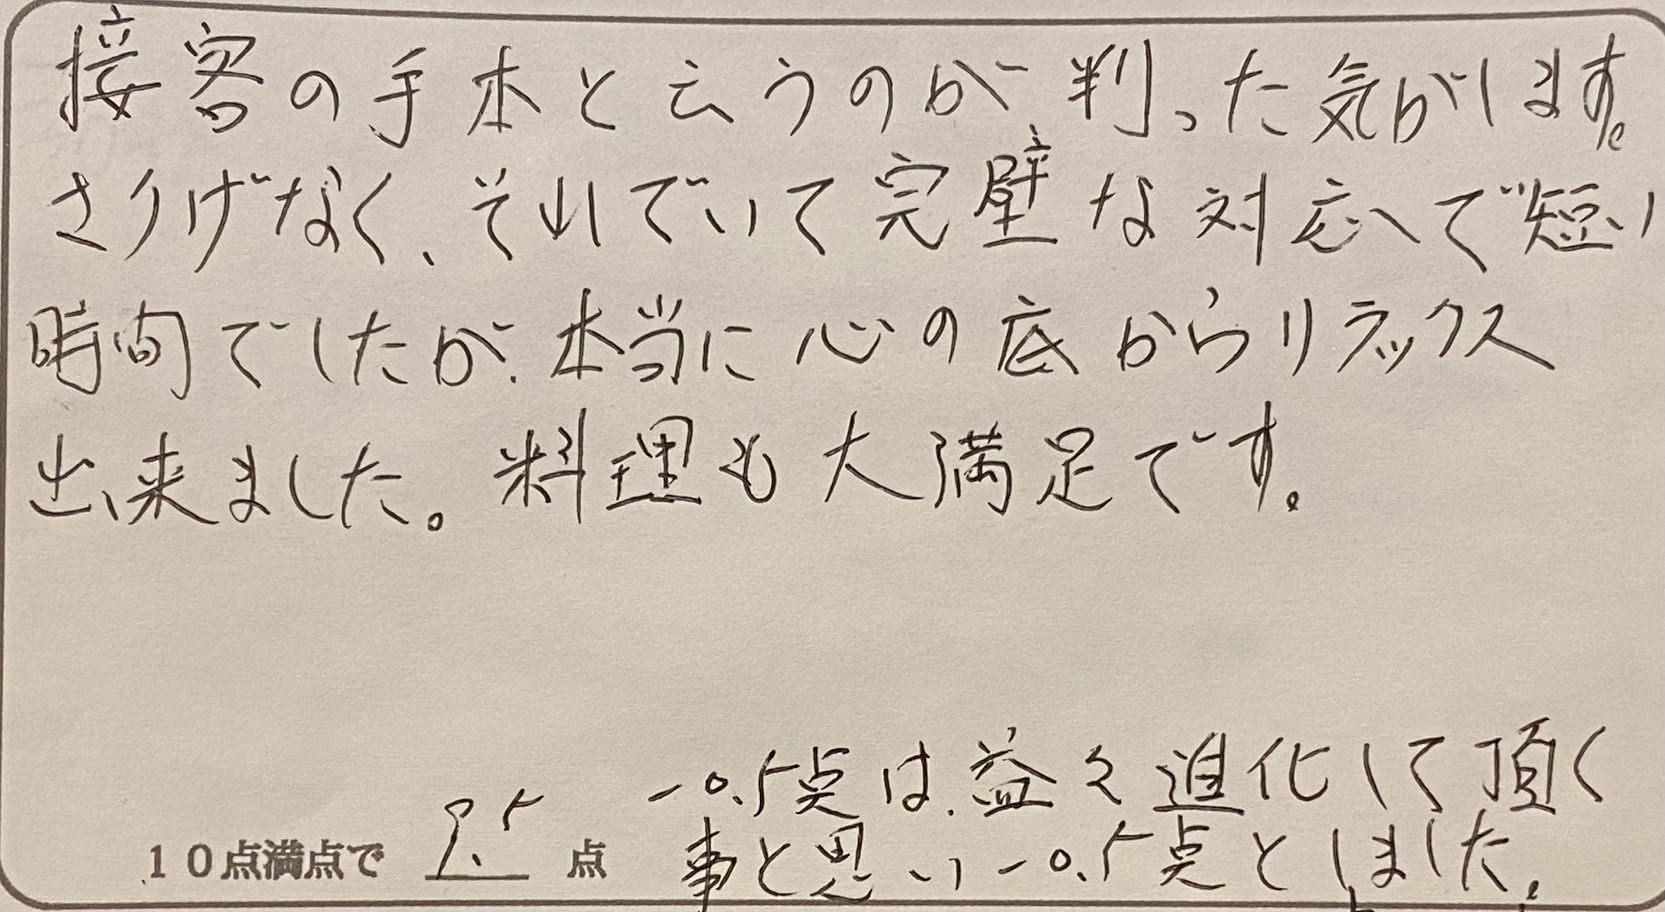 接客の手本と云うのが、判った気がします。
さりげなく、それでいて完璧な対応で短い
時間でしたが、本当に心の底からリラックス
出来ました。料理も大満足です。
-0.5点は、益々進化して頂く
10点満点で 9.5 点 事と思い-0.5点としました。